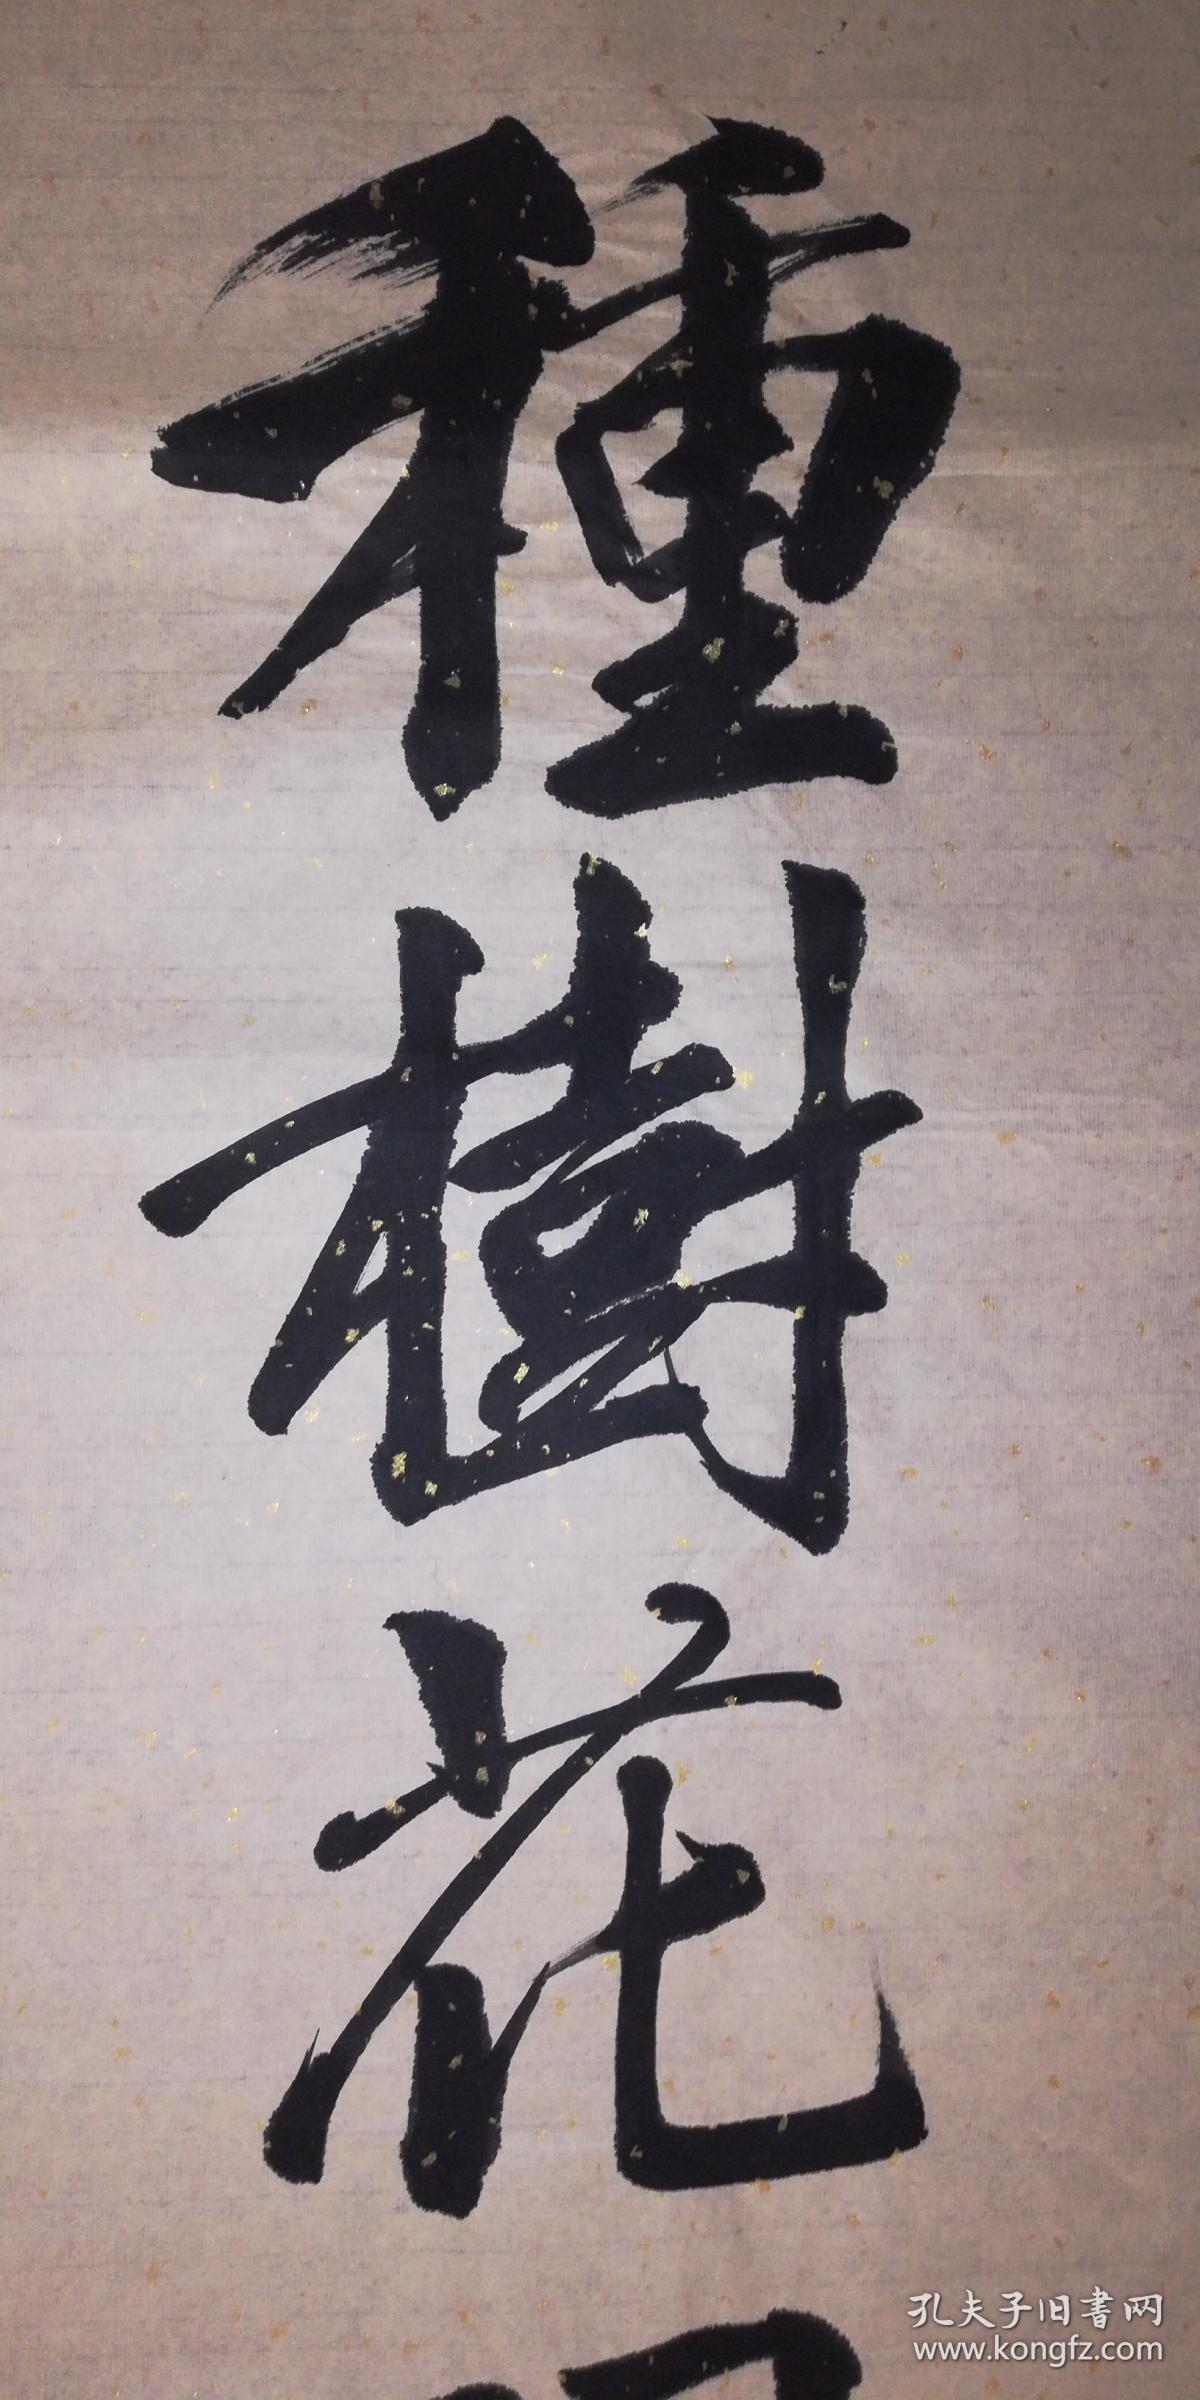 種樹花
孔夫子旧书网
www.kongfz.com